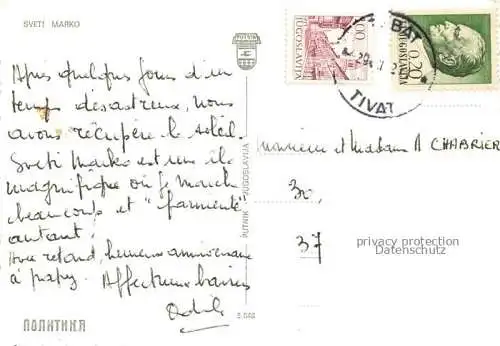 SVETI MARKO
Après quelques jours d'un
temps désastreux, nous
avons récupéré le soleil.
Sveti Marko est une île
magnifique où je marche
beaucoup et "farniente"
autant.
Avec retard, heureux anniversaire
à papy. Affectueux baisers
Odile
ПОЛИТИКА
PUTNIK
PUTNIK - JUGOSLAVIJA
JUGOSLAVIJA
JUGOSLAVIJA
0.20
TIVAT
Monsieur et Madame A CHABRIER
30,
37
privacy protection
Datenschutz